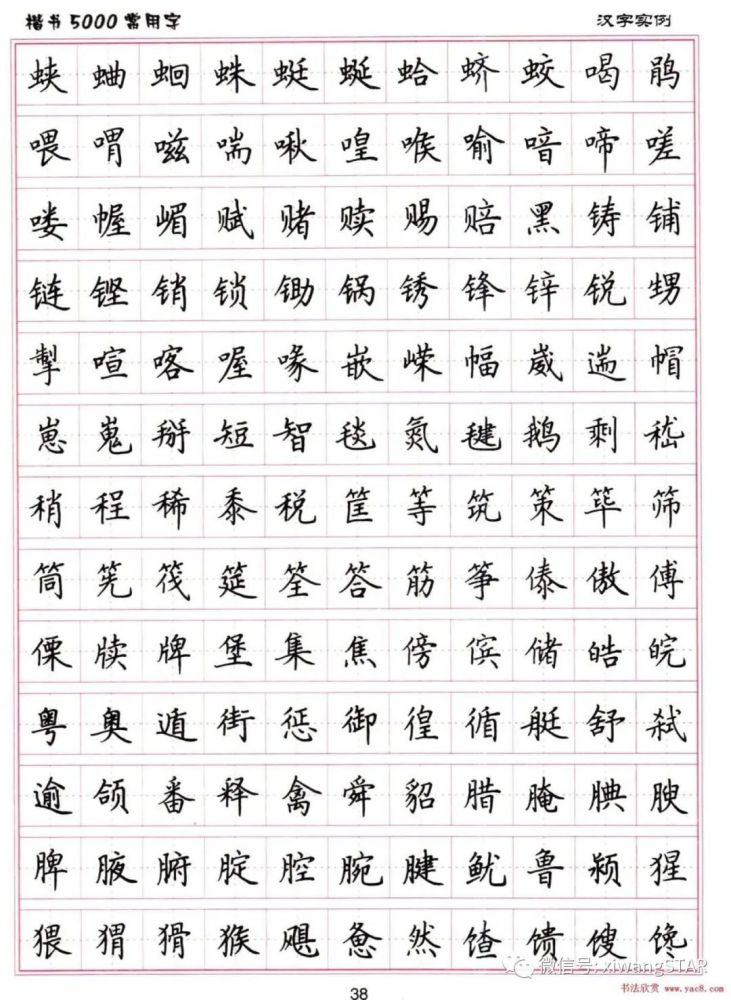 楷书5000常用字 汉字实例
蛱 蛐 蛔 蛛 蜓 蜒 蛤 蛴 蛟 喝 鹃
喂 喟 嗞 喘 啾 喤 喉 喻 喑 啼 嗟
喽 幄 嵋 赋 赌 赎 赐 赔 黑 铸 铺
链 铿 销 锁 锄 锅 锈 锋 锌 锐 甥
掣 喧 喀 喔 喙 嵌 嵘 幅 崴 遄 帽
崽 嵬 掰 短 智 毯 氮 毽 鹅 剩 嵇
稍 程 稀 黍 税 筐 等 筑 策 筚 筛
筒 筅 筏 筵 筌 答 筋 筝 傣 傲 傅
傈 牍 牌 堡 集 焦 傍 傧 储 皓 皖
粤 奥 遁 街 惩 御 徨 循 艇 舒 弑
逾 颌 番 释 禽 舜 貂 腊 腌 腆 腴
脾 腋 腑 腚 腔 腕 腱 鱿 鲁 颍 猩
猥 猬 猾 猴 飓 惫 然 馇 馈 馊 馋
微信号: xiwangSTAR
38
书法欣赏 www.yac8.com